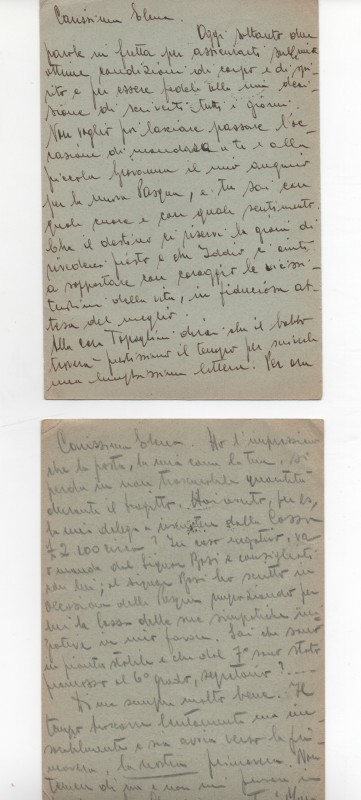 Carissima Elena.
Oggi soltanto due
parole in fretta per assicurarti sulle mie
ottime condizioni di corpo e di spi-
rito e per essere fedele alla mia deci-
sione di scriverti tutti i giorni.
Non voglio poi lasciare passare l'oc-
casione di mandare a te e alla
piccola il mio augurio
per la Pasqua, e tu sai con
quale cuore e con quale sentimento.
Che il destino ci riservi la gioia di
rivederci presto e che Iddio ci aiuti
a sopportare con coraggio le vicissi-
tudini della vita, in fiduciosa at-
tesa del meglio.
Alla cara dirai che il babbo
troverà prestissimo il tempo per scriverle
una lunghissima lettera. Per ora
Carissima Elena. Ho l'impressione
che la posta, la mia come la tua, si
perda in non trascurabile quantità
durante il tragitto. Hai avuto, per es,
la mia delega a della Cassa
£ 2100 circa? In caso negativo, va
a nome del Signor Rossi e consigliati
con lui; al Signor Rossi ho scritto in
occasione della Pasqua ringraziando per
lui la Cassa delle sue simpatiche ini-
ziative in mio favore. Sai che sono
in pianta stabile e che dal 7° sono stato
promosso al 6° grado, segretario? ....
Di me sempre molto bene. Il
tempo trascorre lentamente ma ine-
sorabilmente e si avvia verso la pri-
mavera, la nostra primavera. Non
temere di me e non in